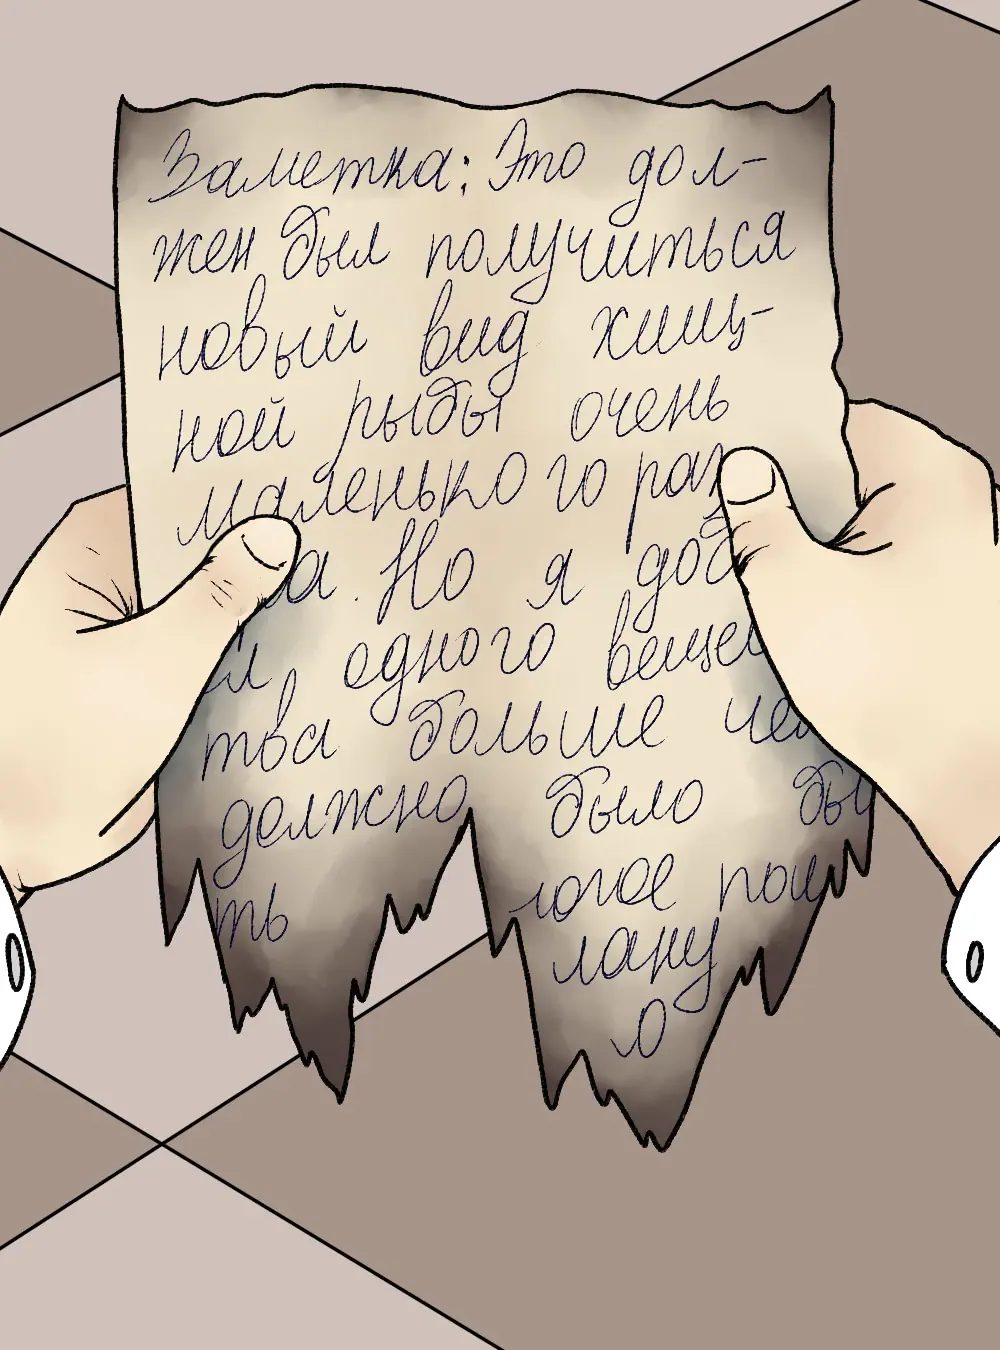 Заметка: Это дол-
жен был получиться
новый вид хищ-
ной рыбы очень
маленького раз
а. Но я доб
л одного вещес
тва больше чем
должно было бы
ть логое пош
лану
ло